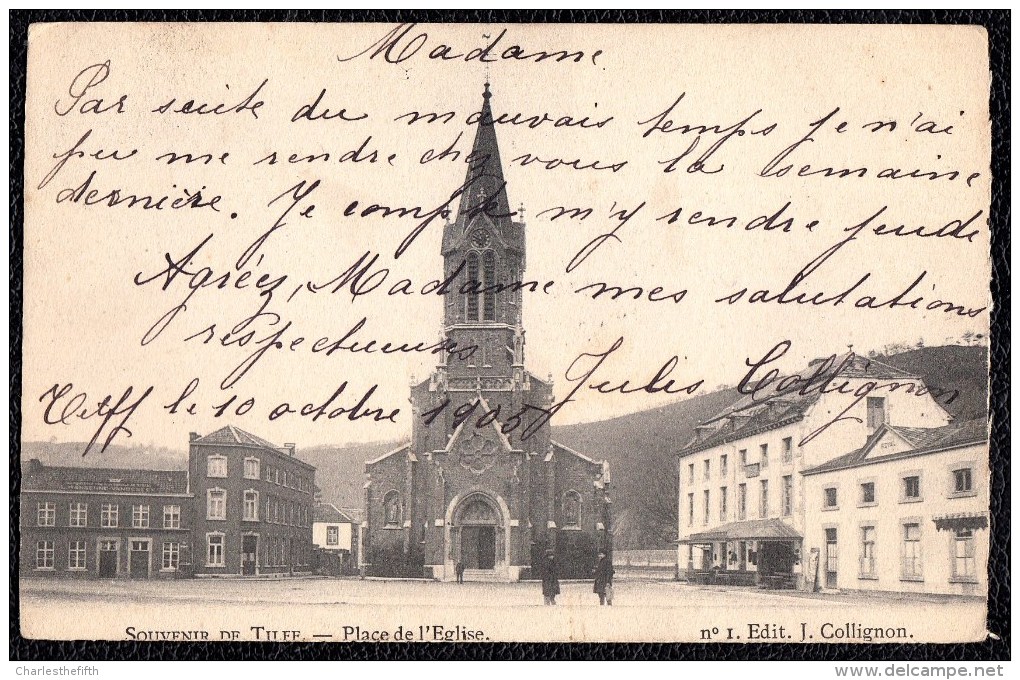 Madame
Par suite du mauvais temps je n'ai
pu me rendre chez vous la semaine
dernière. Je compte m'y rendre jeudi
Agréez, Madame mes salutations
respectueuses
Jules Collignon
Tilff le 10 octobre 1905
HOTEL
SOUVENIR DE TILFF. — Place de l'Eglise.
nº 1. Edit. J. Collignon.
Charlesthefifth
www.delcampe.net